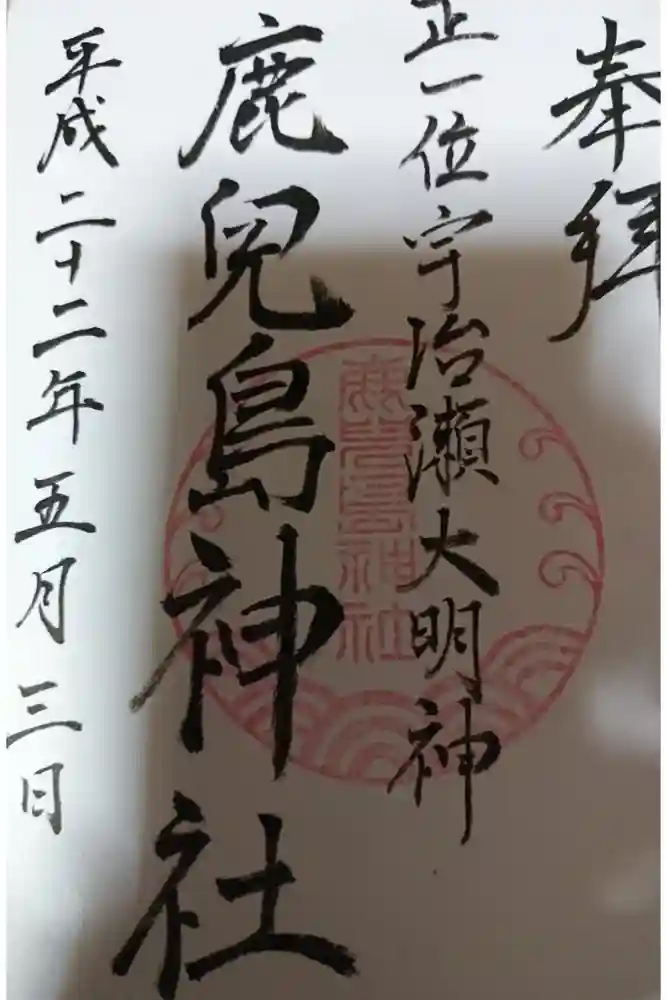 奉拝
正一位宇治瀬大明神
鹿兒島神社
鹿児島神社
平成二十二年五月三日